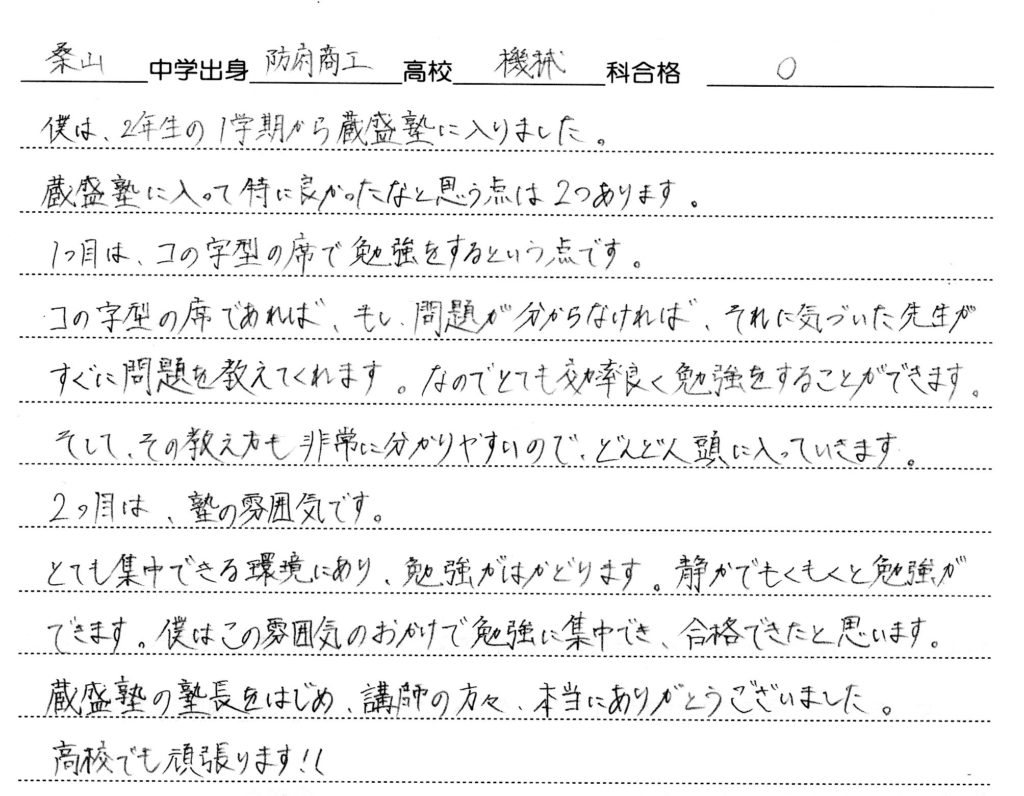 桑山 中学出身 防府商工 高校 機械 科合格 〇
僕は、2年生の1学期から蔵盛塾に入りました。
蔵盛塾に入って特に良かったなと思う点は2つあります。
1つ目は、コの字型の席で勉強をするという点です。
コの字型の席であれば、もし、問題が分からなければ、それに気づいた先生が
すぐに問題を教えてくれます。なのでとても効率良く勉強をすることができます。
そして、その教え方も非常に分かりやすいので、どんどん頭に入っていきます。
2つ目は、塾の雰囲気です。
とても集中できる環境にあり、勉強がはかどります。静かでもくもくと勉強が
できます。僕はこの雰囲気のおかげで勉強に集中でき、合格できたと思います。
蔵盛塾の塾長をはじめ、講師の方々、本当にありがとうございました。
高校でも頑張ります!!